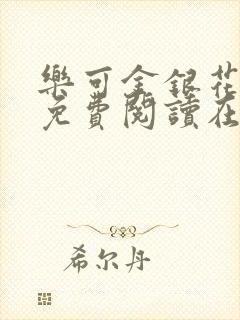 樂可金銀花
免費閱讀在
希尔丹